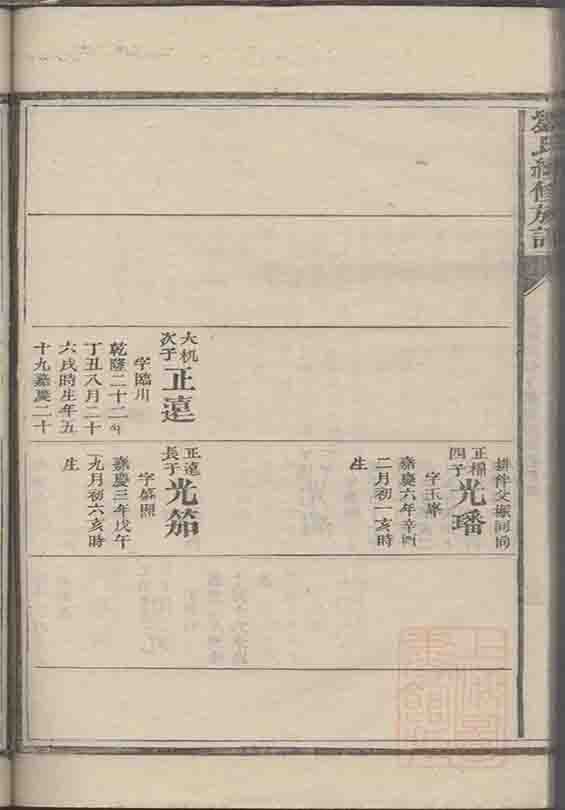 氏續修族譜
大机
次子
正遠
字臨川
乾隆二十二
丁丑八月二十
六戌時生年五
十九嘉慶二十
正楊
四子
光璠
字玉峯
嘉慶六年辛酉
二月初一亥時
生
正遠
長子
光笳
字盛照
嘉慶三年戊午
九月初六亥時
生